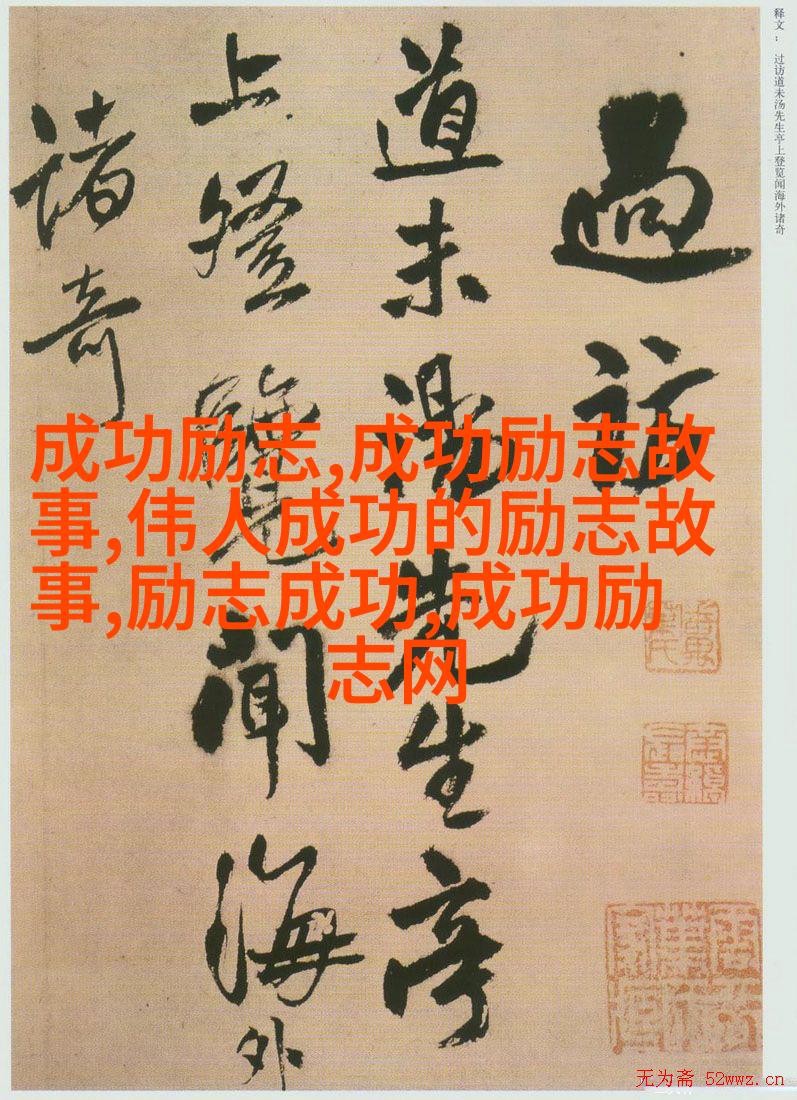 释文： 过访道未汤先生亭上登览闻海外诸奇
過訪
道未湯先生亭
上登覽聞海外
諸奇
成功励志,成功励志故
事,伟人成功的励志故
事,励志成功,成功励
志网
无为斋 52wwz.cn